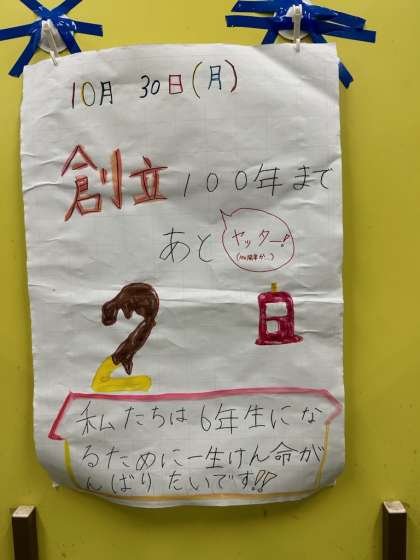 10月 30日(月)
創立100年まで
あと
ヤッター!
2日
私たちは6年生にな
るために一生けん命が
んばりたいです!!